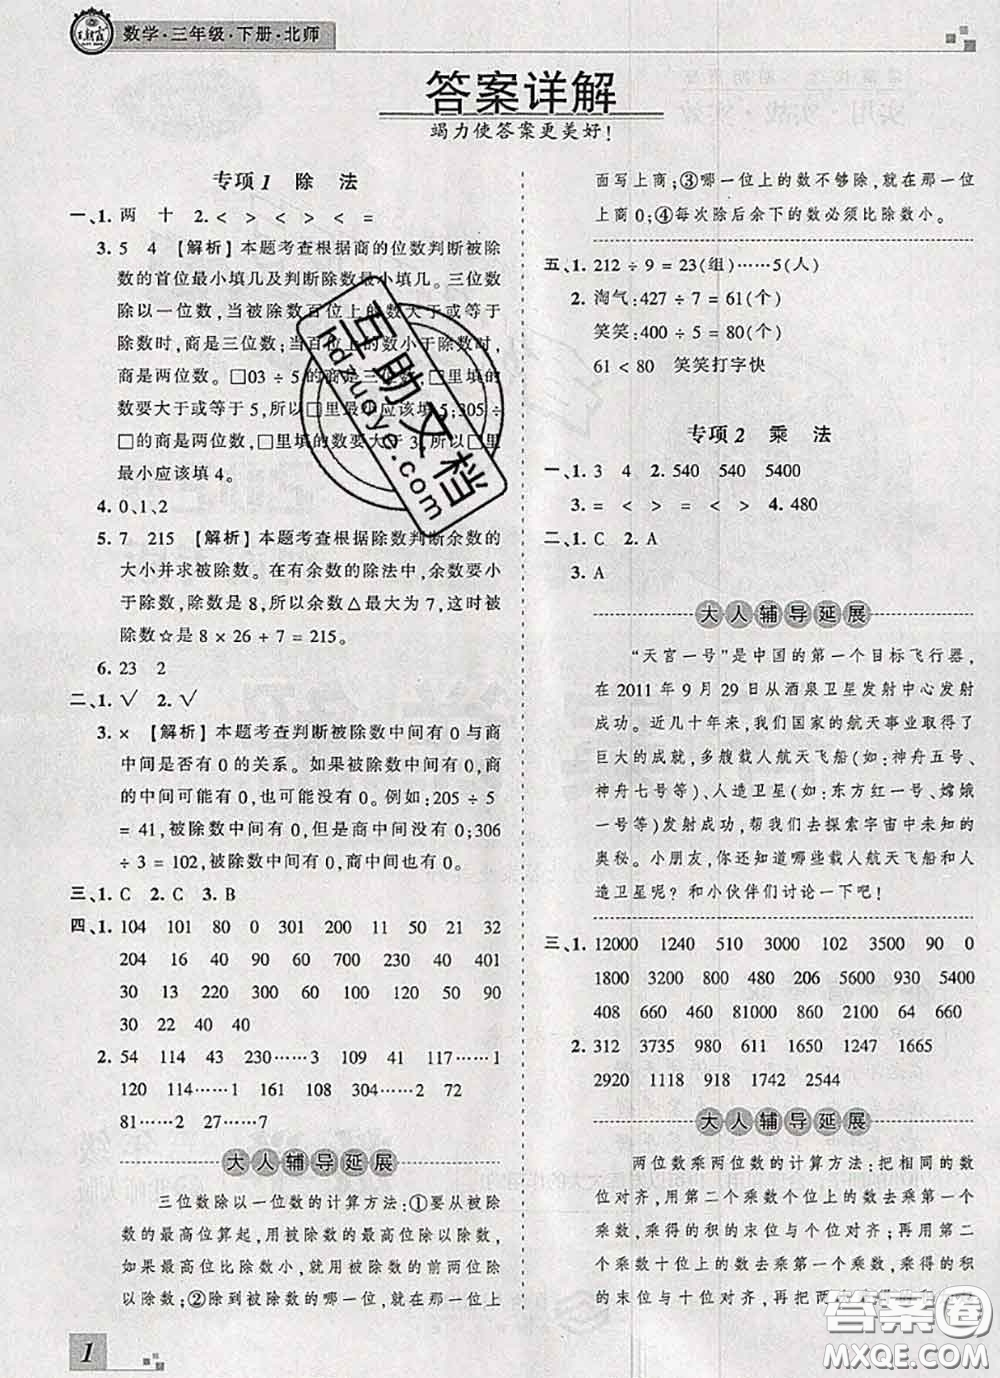 数学·三年级·下册·北师
答案详解
竭力使答案更美好!
专项1 除 法
一、1. 两 十 2. < > < > < =
3. 5 4 [解析] 本题考查根据商的位数判断被除
数的首位最小填几及判断除数最小填几。三位数
除以一位数，当被除数百位上的数大于或等于
除数时，商是三位数；当百位上的数小于除数时，
商是两位数。□03 ÷ 5的商是三位数，□里填的
数要大于或等于 5，所以□里最小应该填 5；305 ÷
□的商是两位数，□里填的数要大于 3，所以□里
最小应该填 4。
4. 0、1、2
5. 7 215 [解析] 本题考查根据除数判断余数的
大小并求被除数。在有余数的除法中，余数要小
于除数，除数是 8，所以余数△最大为 7，这时被
除数☆是 8 × 26 + 7 = 215。
6. 23 2
二、1. √ 2. √
3. × [解析] 本题考查判断被除数中间有 0 与商
中间是否有 0 的关系。如果被除数中间有 0，商
的中间可能有 0，也可能没有 0。例如：205 ÷ 5
= 41，被除数中间有 0，但商的中间没有 0；306
÷ 3 = 102，被除数中间有 0，商中间也有 0。
三、1. C 2. C 3. B
四、1. 104 101 80 0 301 200 101 51 21 32
204 201 40 41 120 91 22 40 401
30 30 13 60 90 110 120 50 90
30 22 40 40
2. 54 114 43 230……3 41 117……1
120 114……1 206……4 102……2 72
81……2 27……2
大人辅导延展
三位数除以一位数的计算方法：①要从被除
数的最高位算起，用被除数的最高位去除以除数，
如果最高位比除数小，就用被除数的前两位除
以除数；②除到被除数的哪一位，就在那一位上
面写上商；③哪一位上的数不够除，就在那一位
上商 0；④每次除后余下的数必须比除数小。
五、1. 212 ÷ 9 = 23(组)……5(人)
2. 淘气：427 ÷ 7 = 61(个)
笑笑：400 ÷ 5 = 80(个)
61 < 80 笑笑打字快
专项2 乘 法
一、1. 3 4 2. 540 540 5400
3. = < > = < > 4. 480
二、1. C 2. A
3. A
大人辅导延展
“天宫一号”是中国的第一个目标飞行器，
在 2011 年 9 月 29 日从酒泉卫星发射中心发射
成功。近几十年来，我们国家的航天事业取得了
巨大的成就，多艘载人航天飞船(如：神舟五号、
神舟七号等)、人造卫星(如：东方红一号、嫦娥
一号等)发射成功，帮助我们去探索宇宙中未知的
奥秘。小朋友，你知道还有哪些载人航天飞船和人
造卫星呢？和小伙伴们讨论一下吧！
三、1. 12000 1240 510 1000 3500 90 0
1800 3200 3600 5600 930 5400
408 660 460 81000 860 210 640
2. 312 3735 980 611 1247 1665
2920 1118 918 1742 2544
大人辅导延展
两位数乘两位数的计算方法：把相同的数
位对齐，用第二个乘数个位上的数去乘第一个
乘数，乘得的积的末位与个位对齐；再用第二
个乘数十位上的数去乘第一个乘数，乘得的积
的末位与十位对齐，再把两
1
互助文档
hdzuoye.com
答案圈
MXQE.COM